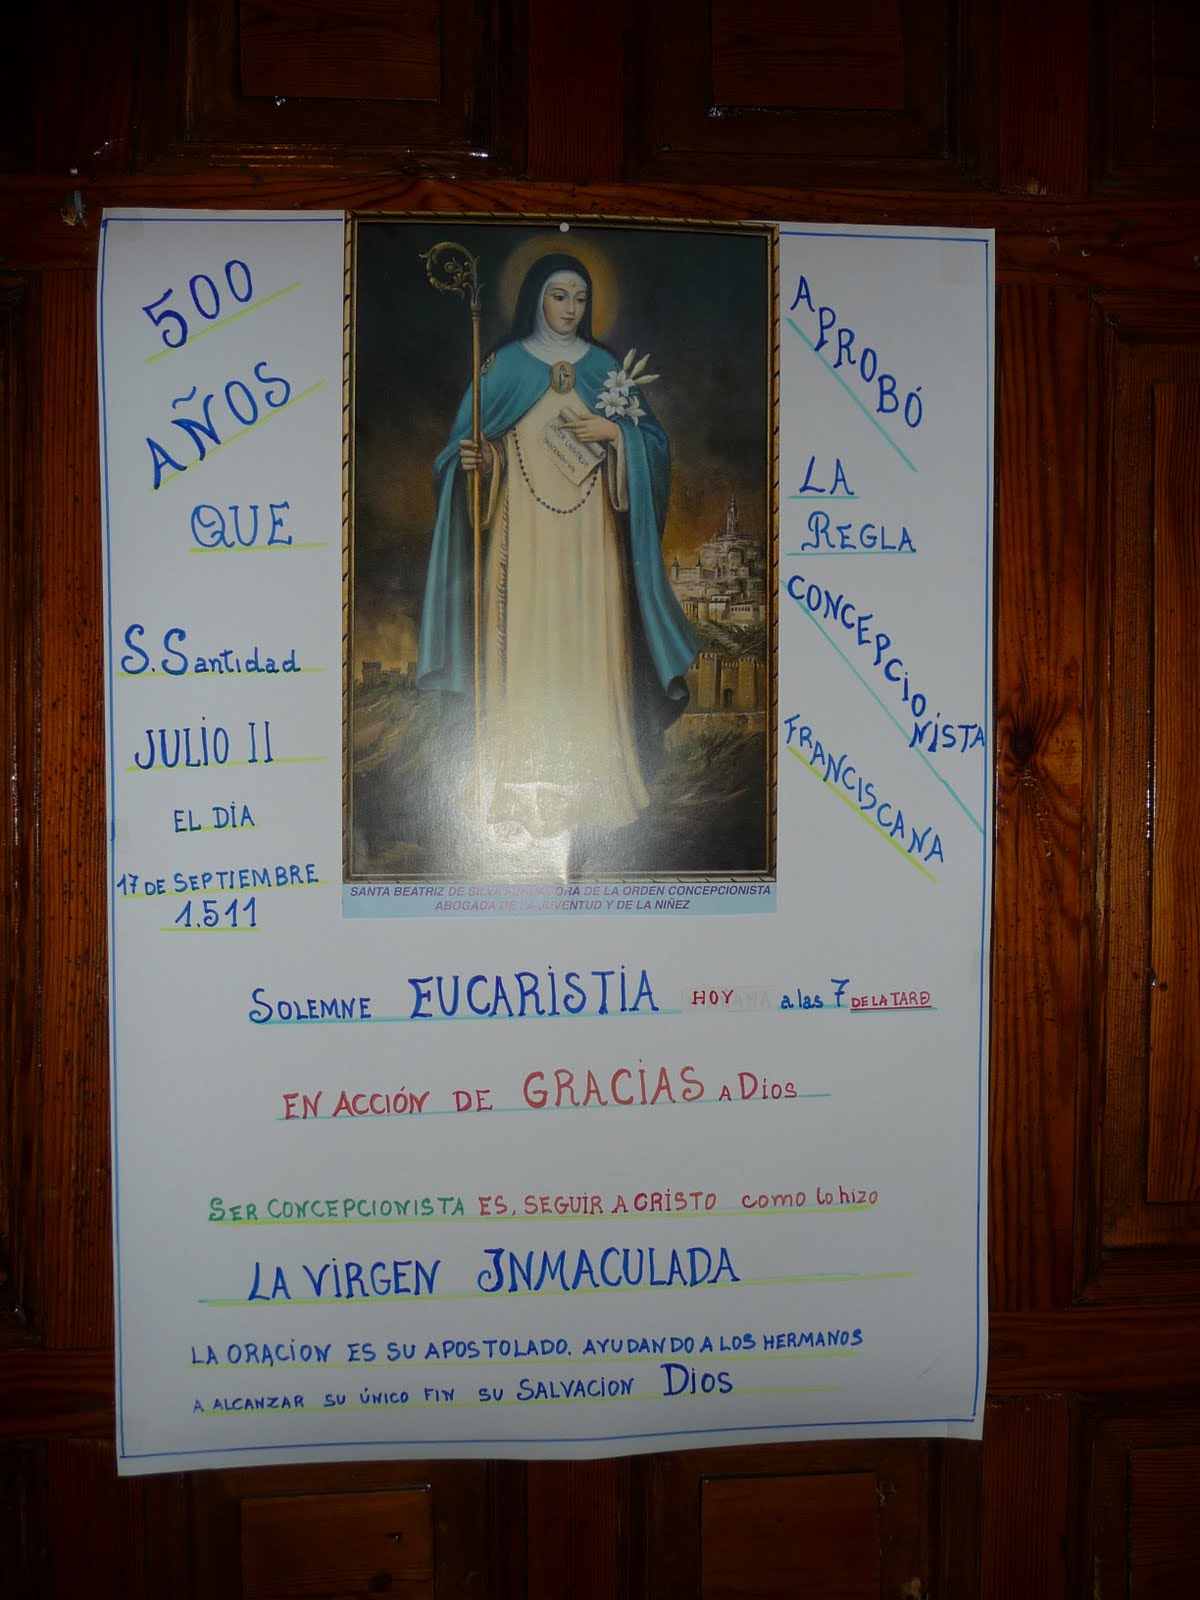 500
AÑOS
QUE
S. Santidad
JULIO II
EL DIA
17 DE SEPTIEMBRE
1.511
APROBÓ
LA
REGLA
CONCEPCIONISTA
FRANCISCANA
SANTA BEATRIZ DE SILVA FUNDADORA DE LA ORDEN CONCEPCIONISTA
ABOGADA DE LA JUVENTUD Y DE LA NIÑEZ
SOLEMNE EUCARISTIA HOY a las 7 DE LA TARD
EN ACCIÓN DE GRACIAS A DiOS
SER CONCEPCIONISTA ES, SEGUIR A CRISTO como lo hizo
LA VIRGEN INMACULADA
LA ORACION ES SU APOSTOLADO. AYUDANDO A LOS HERMANOS
A ALCANZAR SU ÚNICO FIN SU SALVACION DIOS